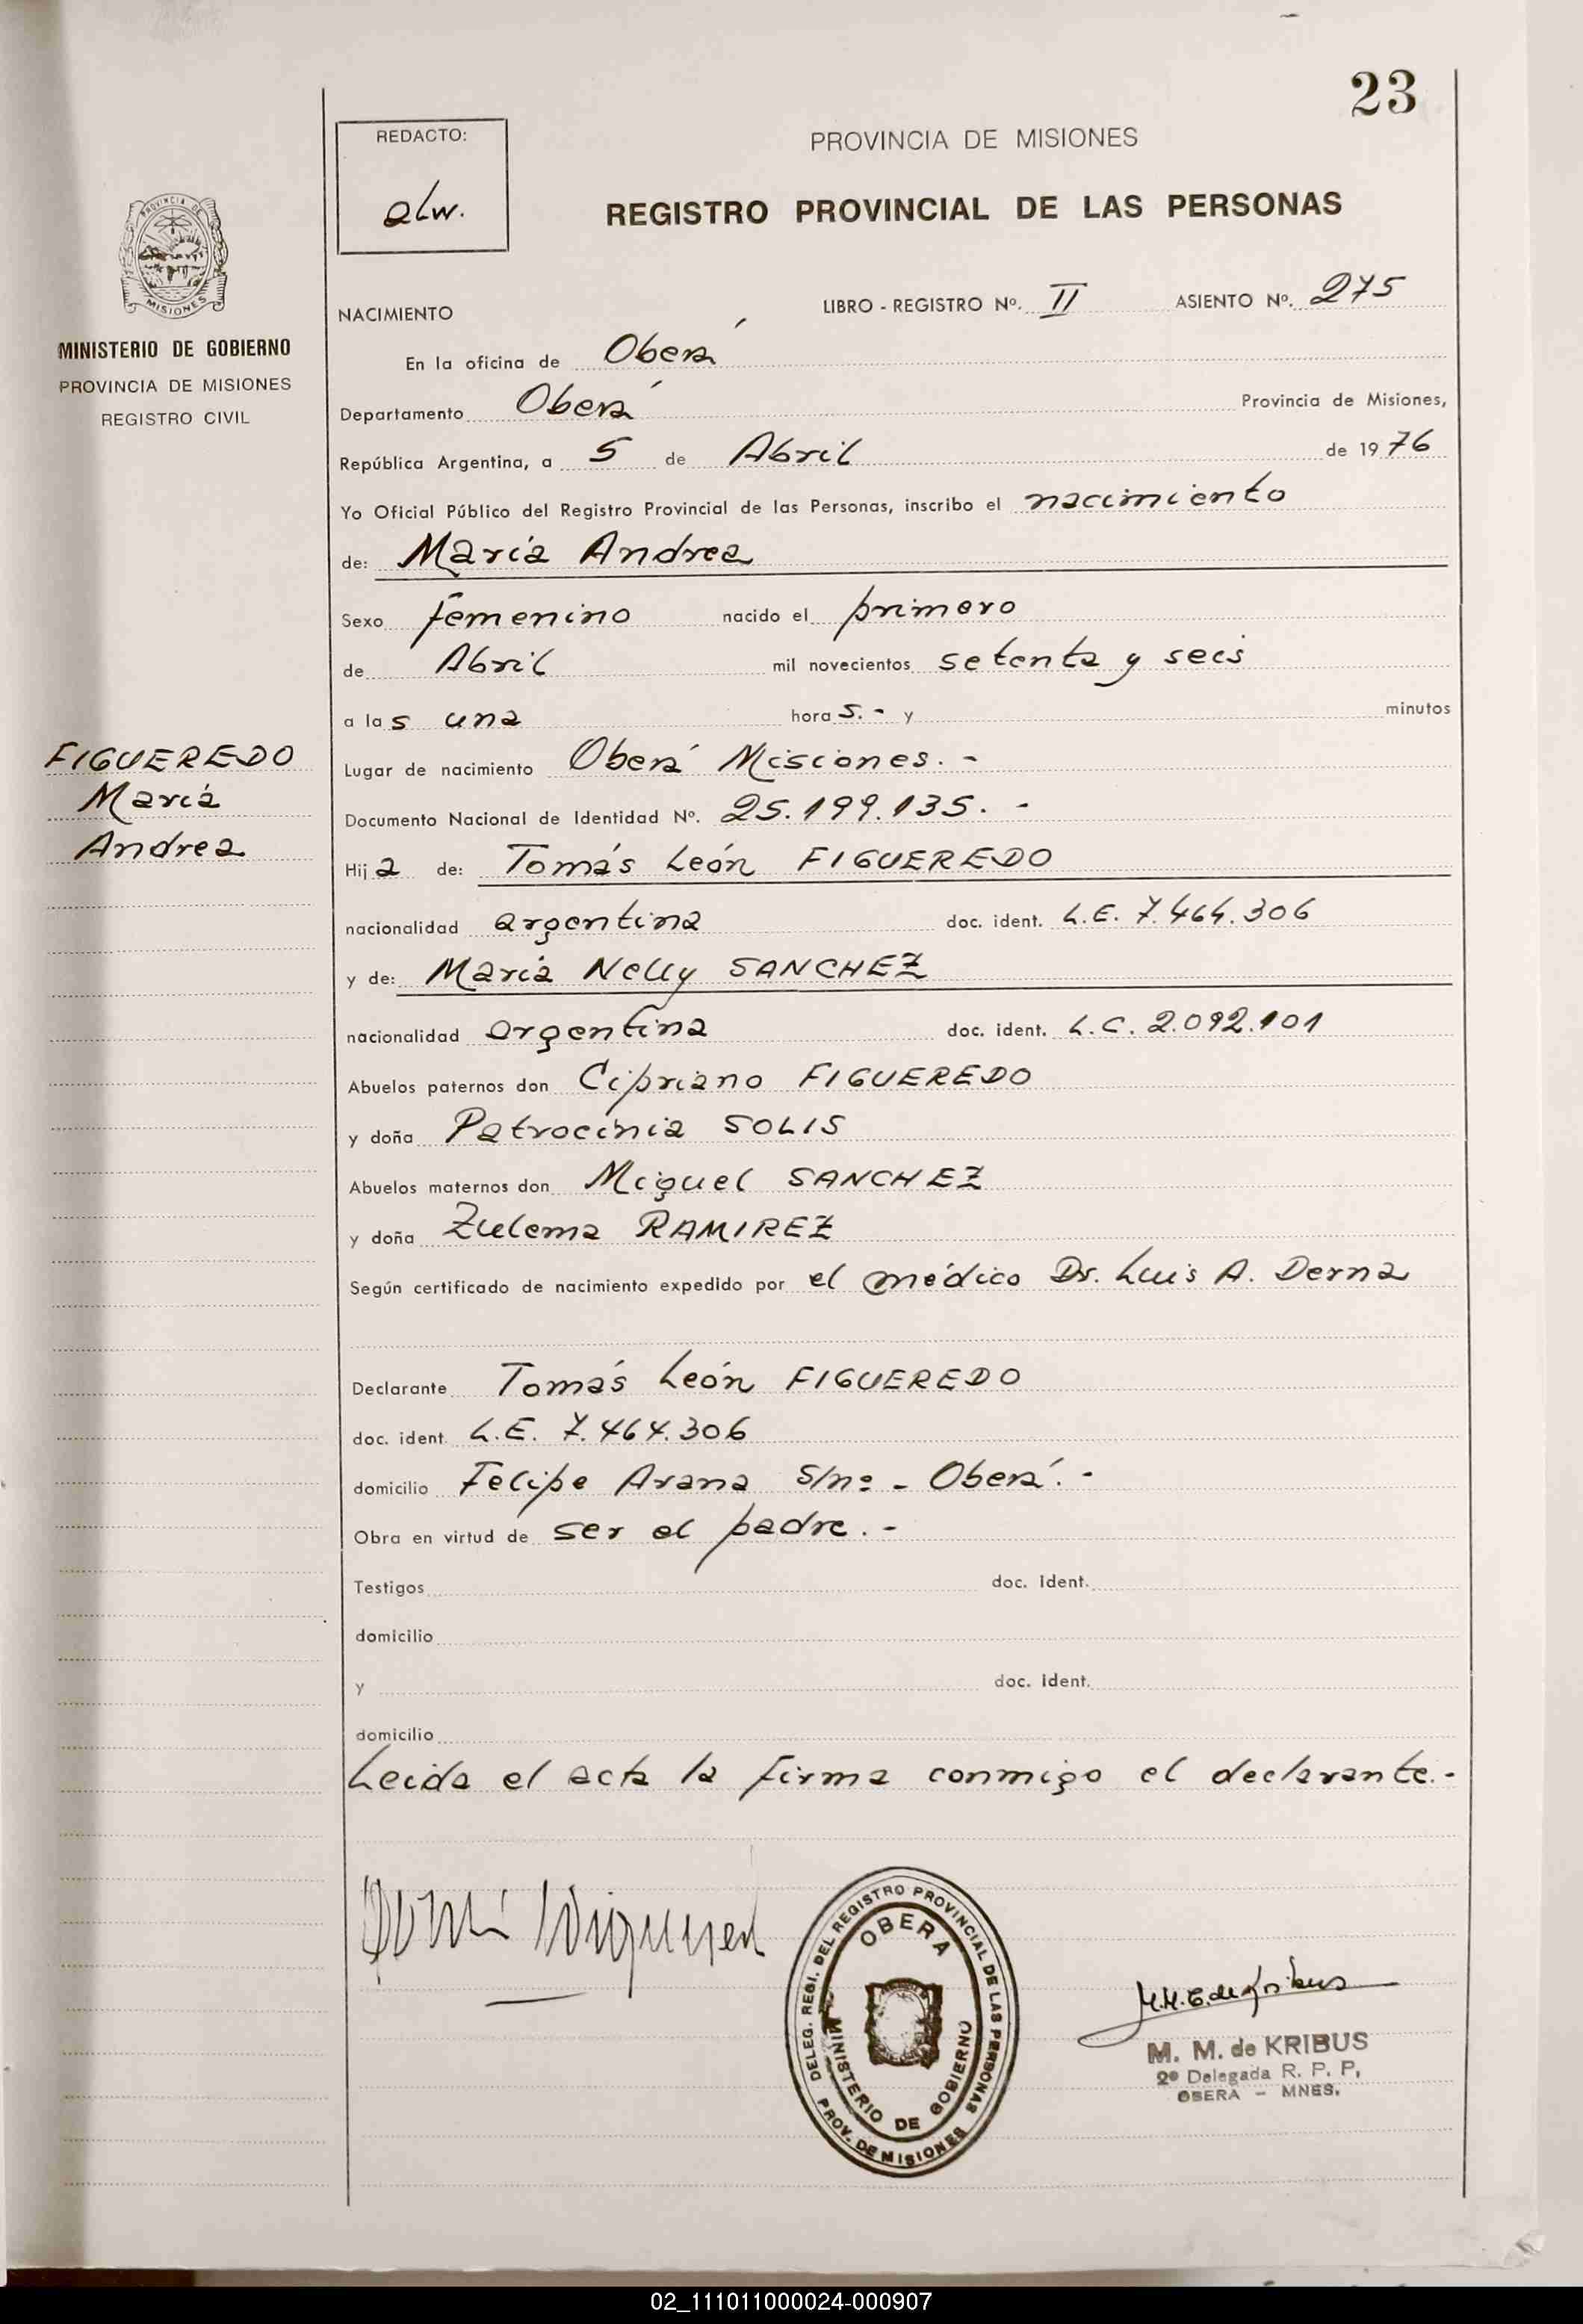 23
REDACTO:
alw.
PROVINCIA DE MISIONES
REGISTRO PROVINCIAL DE LAS PERSONAS
PROVINCIA DE
MISIONES
MINISTERIO DE GOBIERNO
PROVINCIA DE MISIONES
REGISTRO CIVIL
FIGUEREDO
María
Andrea
NACIMIENTO LIBRO - REGISTRO Nº. II ASIENTO Nº. 275
En la oficina de Oberá
Departamento Oberá Provincia de Misiones,
República Argentina, a 5 de Abril de 1976
Yo Oficial Público del Registro Provincial de las Personas, inscribo el nacimiento
de: María Andrea
Sexo femenino nacido el primero
de Abril mil novecientos setenta y seis
a las una horas.- y minutos
Lugar de nacimiento Oberá Misiones.-
Documento Nacional de Identidad Nº. 25.199.135.-
Hija de: Tomás León FIGUEREDO
nacionalidad argentina doc. ident. L.E. 7.464.306
y de: María Nelly SANCHEZ
nacionalidad argentina doc. ident. L.C. 2.092.101
Abuelos paternos don Cipriano FIGUEREDO
y doña Patrocinia SOLIS
Abuelos maternos don Miguel SANCHEZ
y doña Zulema RAMIREZ
Según certificado de nacimiento expedido por el médico Dr. Luis A. Derna
Declarante Tomás León FIGUEREDO
doc. ident. L.E. 7.464.306
domicilio Felipe Arana s/nº - Oberá.-
Obra en virtud de ser el padre.-
Testigos doc. ident.
domicilio
y doc. ident.
domicilio
Leida el acta la firma conmigo el declarante.-
DELEG. REGI. DEL REGISTRO PROVINCIAL DE LAS PERSONAS
OBERA
MINISTERIO DE GOBIERNO
PROV. DE MISIONES
M.M.C. de Kribus
M. M. de KRIBUS
2º Delegada R. P. P,
OBERA - MNES.
02_111011000024-000907